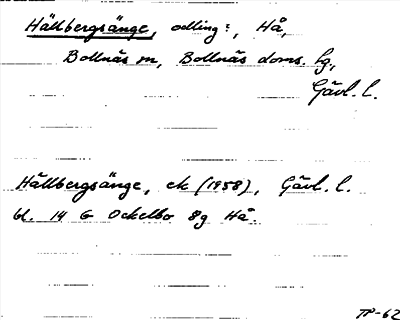 Hällbergsänge, odling:, Hå,
Bollnäs sn, Bollnäs doms. lg,
Gävl. l.
Hällbergsänge, ek (1958), Gävl. l.
bl. 14 G Ockelbo 8g Hå.
TP-62